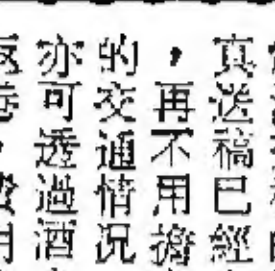 真送稿已經
，再不用擔
的交通情況
亦可透過酒